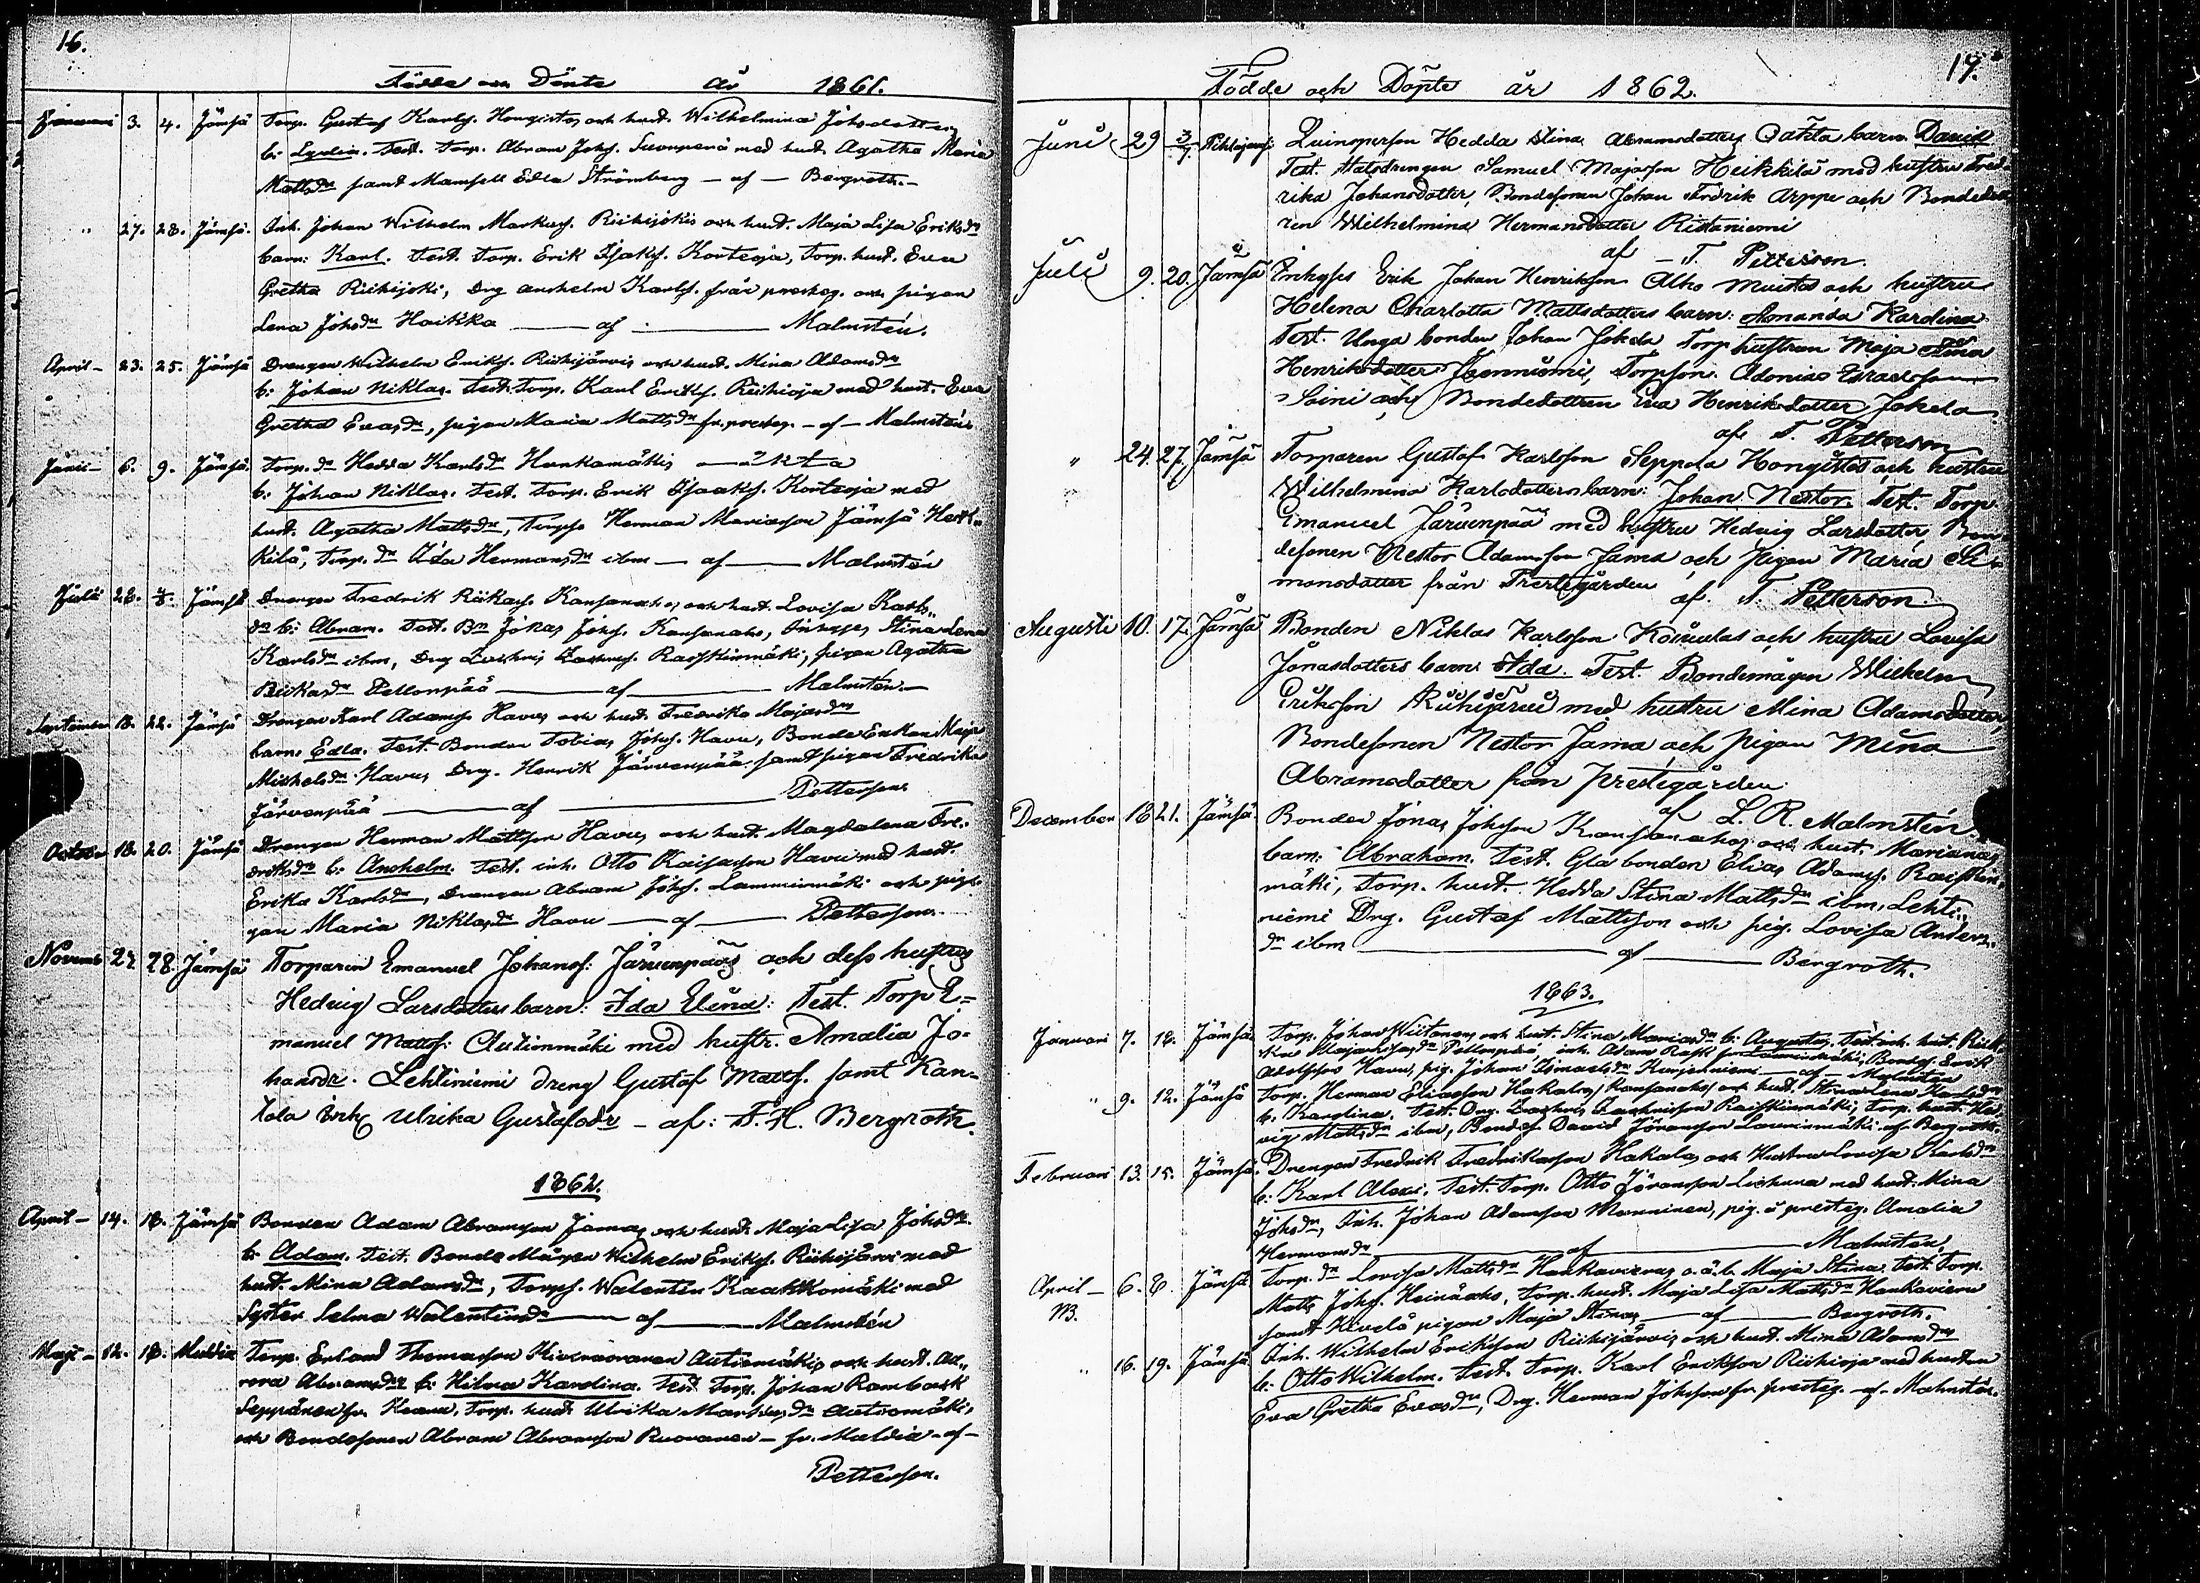 16.
Födde och Döpte År 1861.
Januari 3. 4. Jämsä Torp. Gustaf Karlss. Hongistos och hust. Wilhelmina Johsdotters
b: Lydia. Test. Torp. Abram Johss. Suonperä med hust. Agatha Maria
Mattsdr samt Mamsell Edla Strömberg — af — Bergroth.
" 27. 28. Jämsä. Inh. Johan Wilhelm Markuss. Riihijokis och hust. Maja Lisa Eriksdrs
barn: Karl. Test. Torp. Erik Isakss. Korteoja, Torp. hust. Eva
Gretha Riihijoki, Drg Anshelm Karlss. från presteg. och pigan
Lena Johsdr Hoikka — af — Malmstén.
April — 23. 25. Jämsä Drengen Wilhelm Erikss. Riihijärvis och hust. Mina Adamsdrs
b: Johan Niklas. Test. Torp. Karl Erikss. Riihioja med hust. Eva
Gretha Evasdr, pigan Maria Mattsdr fr. presteg. — af — Malmstén.
Juni — 6. 9. Jämsä Torp. dr Hedda Karlsdr Hankamäkis oäkta
b: Johan Niklas. Test. Torp. Erik Isaakss. Korteoja med
hust. Agatha Mattsdr, Torpss Herman Mariasson Jämsä Heik-
kilä, Torp. dr Ida Hermansdr ibm — af — Malmstén
Juli 28. 4/8. Jämsä Drengen Fredrik Riikass. Kansanahos och hust. Lovisa Karls-
drs b: Abram. Test. Bn Jonas Johss. Kansanaho, Stina Lena
Karlsdr ibm, Drg Zachris Zachriss. Raiskinmäki, pigan Agatha
Riikasdr Pellonpää — af — Malmstén.
September 18. 22. Jämsä Drengen Karl Adamss. Havus och hust. Fredrika Majasdrs
barn: Edla. Test. Bonden Tobias Johss. Havu, Bonde Enkan Maja
Michelsdr Havu, Drg. Henrik Järvenpää samt pigan Fredrika
Järvenpää — af — Petterson.
October 18. 20. Jämsä Drengen Herman Mattsson Havus och hust. Magdalena Fre-
driksdrs b: Anshelm. Test. inh. Otto Kaisasson Havu med hust.
Erika Karlsdr, Drengen Abram Johss. Lamminmäki och pig-
gan Maria Niklasdr Havu — af — Petterson.
Novemb 27. 28. Jämsä Torparen Emanuel Johanss: Järvenpääs och dess hustrus
Hedvig Larsdotters barn: Ida Elina: Test. Torp E-
manuel Mattss: Autionmäki med hustr. Amalia Jo-
hansdr. Lehtiniemi dreng Gustaf Mattss. samt Kan-
tola Enk Ulrika Gustafsdr — af: F. H. Bergroth.
1862.
April — 14. 18. Jämsä Bonden Adam Abramsson Jämas och hust. Maja Lisa Johsdrs
b: Adam. Test. Bonde Mågen Wilhelm Erikss. Riihijärvi med
hust. Mina Adamsdr, Torpss. Walentin Kaakkomäki med
Syster Selma Walentinsdr — af — Malmstén
Maji — 12. 18. Muldia Torp. Erland Thomasson Autiomäkis och hust. Au-
rora Abramsdrs b: Hilma Karolina. Test. Torp. Johan Rambask
Seppänen fr. Keuru, Torp. hust. Ulrika Markusdr Autiomäki,
och Bondesonen Abram Abramsson Ruovanen — fr. Muldia — af —
Petterson.
17.
Födde och Döpte år 1862.
Juni 29 3/7. Pihlajavesi Quinsperson Hedda Stina Abramsdotters Oäkta barn David
Test. Statsdrengen Samuel Majasson Heikkilä med hustru Fred-
rika Johansdotter, Bondesonen Johan Fredrik Arppe och Bondedott-
ren Wilhelmina Hermansdotter Ristaniemi
af — T. Petterson.
Juli 9. 20. Jämsä Inhyses Erik Johan Henrikson Alho Muistos och hustru
Helena Charlotta Mattsdotters barn: Amanda Karolina
Test. Unga bonden Johan Jokela Torp hustrun Maja Stina
Henriksdotter Henniemi, Torpson. Adonias Esraelsson
Soini och Bondedottren Eva Henriksdotter Jokela
af T. Petterson
" 24. 27. Jämsä Torparen Gustaf Karlsson Seppola Hongistos och hustru
Wilhelmina Karlsdotters barn: Johan Nestor. Test. Torp.
Emanuel Järvenpää med hustru Hedvig Larsdotter, Bon-
desonen Nestor Adamsson Jämä och Pigan Maria Si-
monsdotter från Prestegården af. T. Petterson.
Augusti 10. 17. Jämsä Bonden Niklas Karlsson Koivulas och hustru Lovisa
Jonasdotters barn: Ida. Test. Bondemågen Wilhelm
Eriksson Riihijärvi med hustru Mina Adamsdotter,
Bondesonen Nestor Jämä och pigan Mina
Abramsdotter från prestegården.
af L. R. Malmstén.
December 18 21. Jämsä Bonden Jonas Johsson Kansanahos och hust. Marianas
barn: Abraham. Test. Gla bonden Elias Adamss. Raiskin-
mäki, Torp. hust. Hedda Stina Mattsdr ibm, Lehti-
niemi Drg. Gustaf Mattsson och pig. Lovisa Anders-
dr ibm — af — Bergroth.
1863.
Januari 7. 12. Jämsä Torp. Johan Wiitanens och hust. Stina Mariasdrs b: Augustus. Test. inh. hust. Riik-
ka Majasdr Pellonpää, inh. Adam Rask fr. Lamminmäki, Bondes. Erik
Adolfsson Havu, pig. Johan — af — Malmstén
" 9. 12. Jämsä Torp. Herman Eliasson Hakalas Kansanahos och hust. Stina Lena Karlsdrs
b: Karolina. Test. Drg. Zachris Zachrisson Raiskinmäki, Torp. hust. Hed-
vig Mattsdr ibm, Bondes. David Jöransson Lamminmäki af Bergroth.
Februari 13. 15. Jämsä Drengen Fredrik Fredriksson Hakalas och Hustru Lovisa Karlsdrs
b: Karl Alexi. Test. Torp. Otto Jöransson med hust. Mina
Johsdr, Inh. Johan Adamsson Manninen, pig. å presteg. Amalia
Hermansdr — af — Malmstén.
April — 6. 8. Jämsä Torp. dr Lovisa Mattsdr Hankavieras o.ä.b. Maja Stina. Test. Torp.
M. Matts Johss. Heinäaho, Torp. hust. Maja Lisa Mattsdr Hankaviera
samt Kivelä pigan Maja Stina — af — Bergroth.
" 16. 19. Jämsä Inh. Wilhelm Eriksson Riihijärvis och hust. Mina Adamsdrs
b: Otto Wilhelm. Test. Torp. Karl Eriksson Riihioja med hustru
Eva Gretha Evasdr, Drg. Herman Johsson fr. presteg. — af — Malmstén.